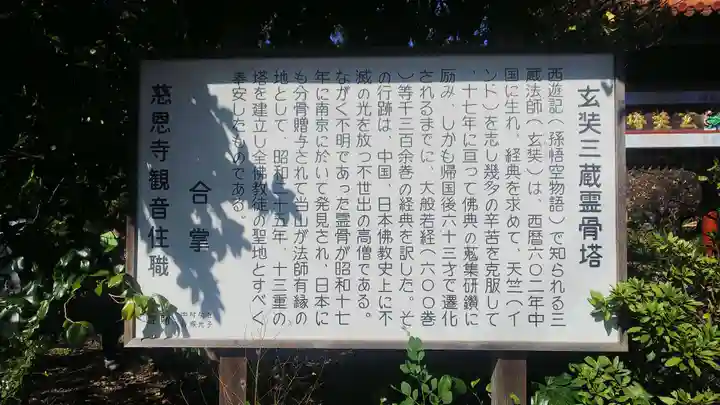 玄奘三蔵霊骨塔
西遊記(孫悟空物語)で知られる三
蔵法師(玄奘)は、西暦六〇二年中
国に生れ、経典を求めて、天竺(イ
ンド)を志し幾多の辛苦を克服して
、十七年に亘って佛典の蒐集研鑽に
励み、しかも帰国後六十三才で遷化
されるまでに、大般若経(六〇〇巻
)等千三百余巻の経典を訳した。そ
の行跡は、中国、日本佛教史上に不
滅の光を放つ不世出の高僧である。
ながく不明であった霊骨が昭和十七
年に南京に於いて発見され、日本に
も分骨贈与されて当山が法師有縁の
地として、昭和二十五年、十三重の
塔を建立し全佛教徒の聖地とすべく
奉安したものである。
合掌
慈恩寺観音住職